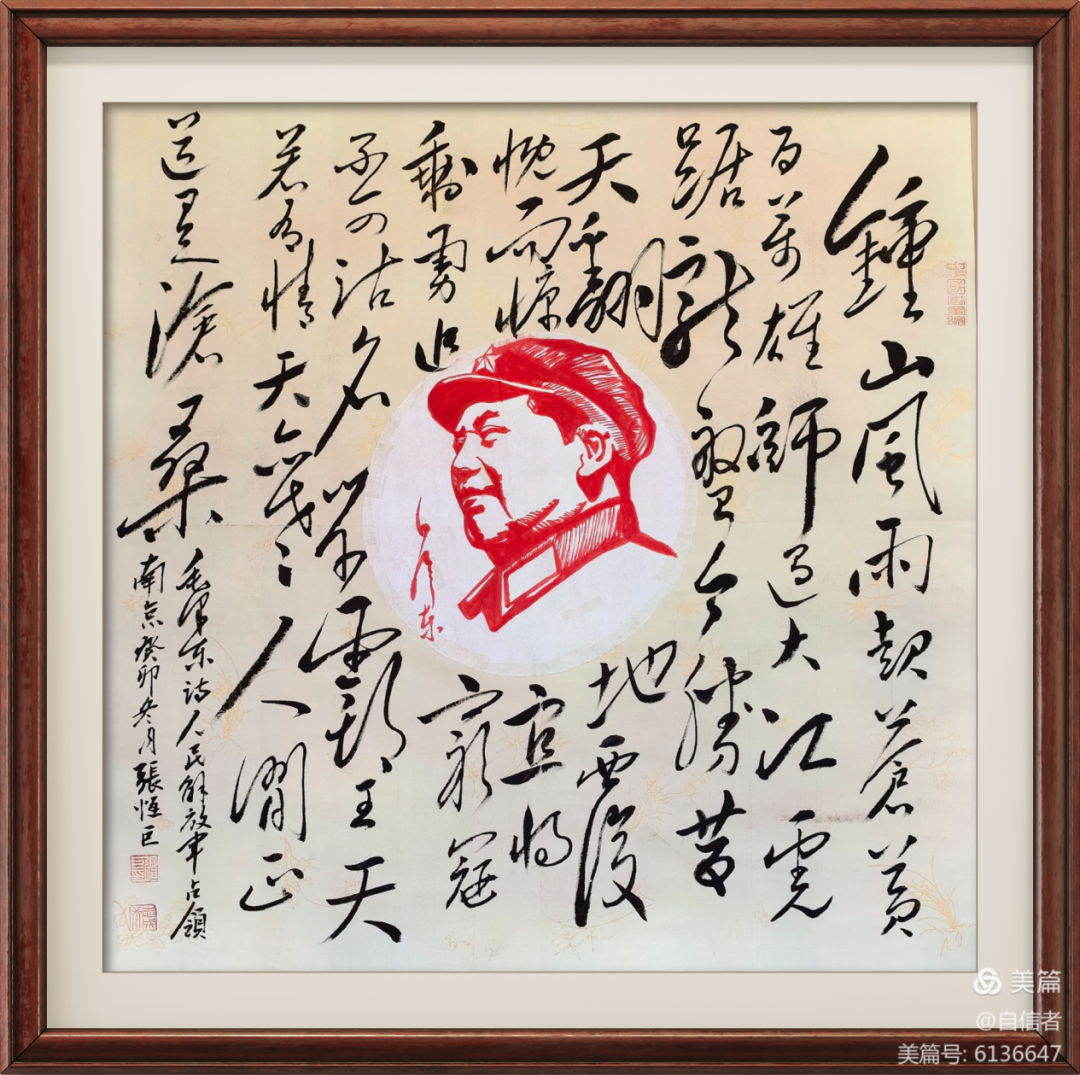 鍾山風雨起蒼黄
百萬雄師過大江虎
踞龍盤今勝昔
天翻地覆
慨而慷宜將
剩勇追窮寇
不可沽名學霸王天
若有情天亦老人間正
道是滄桑
毛澤東詩人民解放軍占領
南京癸卯冬月張恒巨
毛澤东
美篇
@自信者
美篇号: 6136647